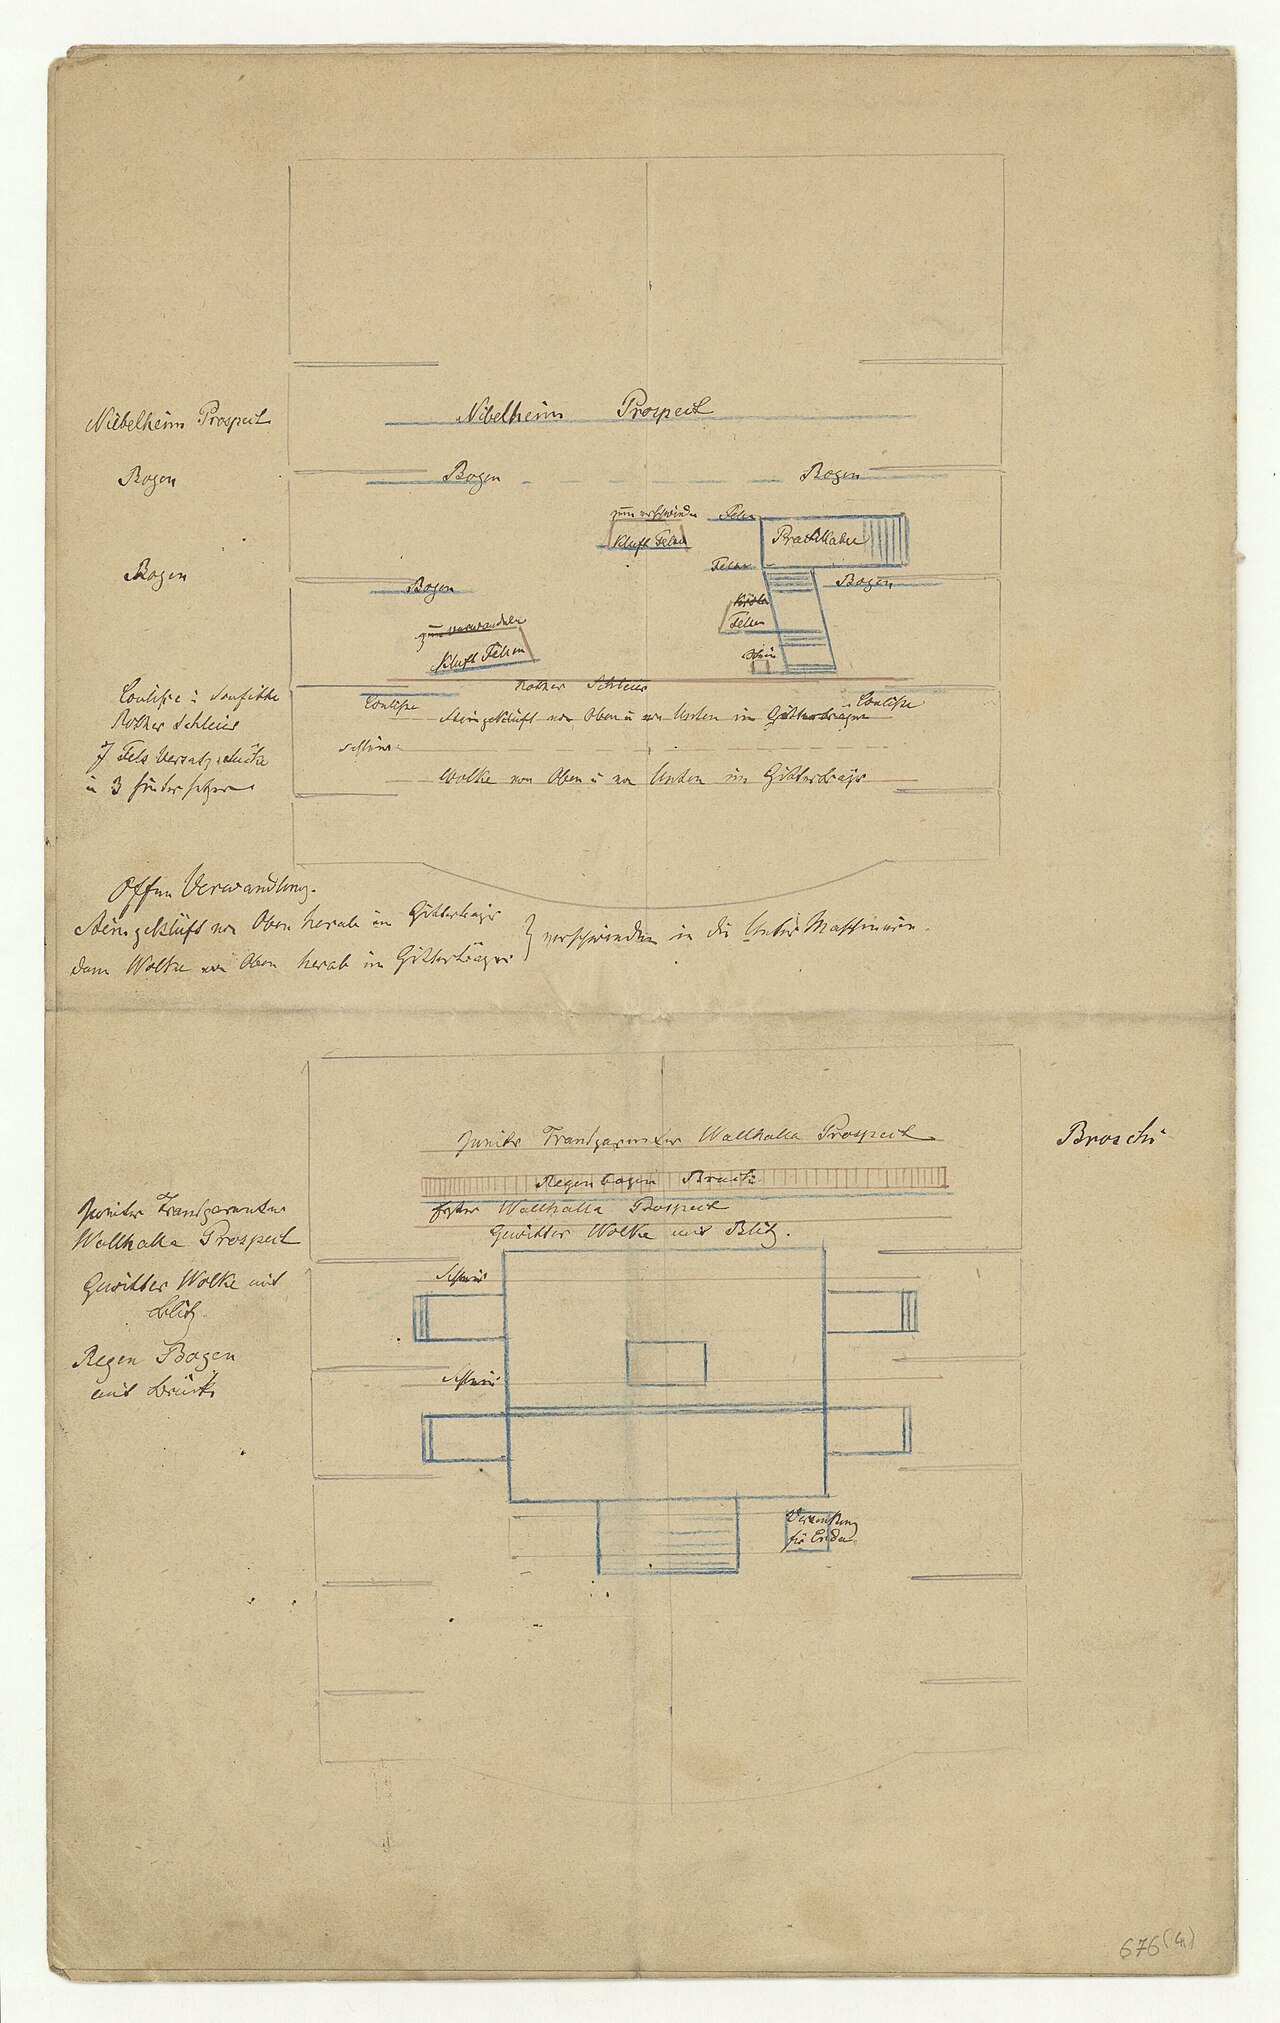 Nibelheim Prospect
Niebelheim Prospect
Bogen
Bogen
Bogen
zum verschwinden
Felsen
Kluft Felsen
Prachtkabel
Felsen
Bogen
Bogen
Bogen
Felsen
Kluft Felsen
Rother Schleier
Coulisse u Soufitte
Coulisse
Coulisse
Rother Schleier
Steingeklüft von Oben u von Unten im Gitterträger
7 Fels Versatzstücke
Wolke von Oben u von Unten im Gitterträger
u 3 Hintersetzer
Offene Verwandlung.
Steingeklüft von Oben herab im Gitterträger
verschwinden in die Unter Maschinerie.
dann Wolke von Oben herab im Gitterträger
zweiter Transparenter Wallhalla Prospect
Broschi
Regenbogen Brücke
zweiter Transparenter
erster Wallhalla Prospect
Wallhalla Prospect
Gewitter Wolke mit Blitz.
Gewitter Wolke mit
Blitz.
Regen Bogen
mit Brücke
Versenkung
für Erda
676 (4)